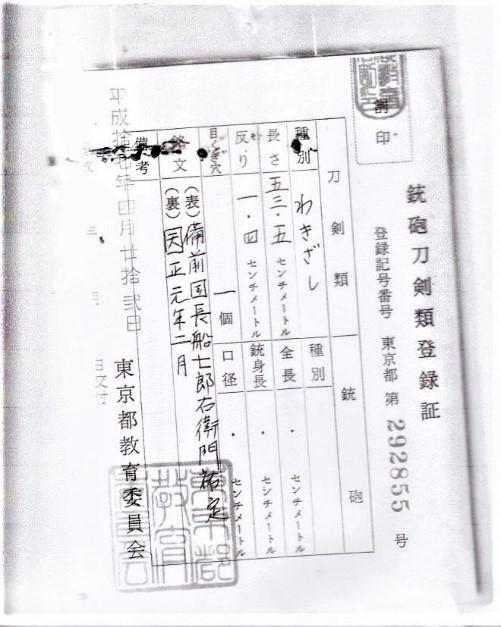 銃砲刀剣類登録証
割印
登録記号番号 東京都 第 292855 号
刀剣類 銃砲
種別 わきざし 種別
長さ 五三・五 センチメートル 全長 ・ センチメートル
反り 一・四 センチメートル 銃身長 ・ センチメートル
目くぎ穴 一個 口径 ・ センチメートル
銘文 (表)備前国長船士郎右衛門祐定
(裏)因正元年二月
備考
平成拾年四月廿拾弐日
東京都教育委員会